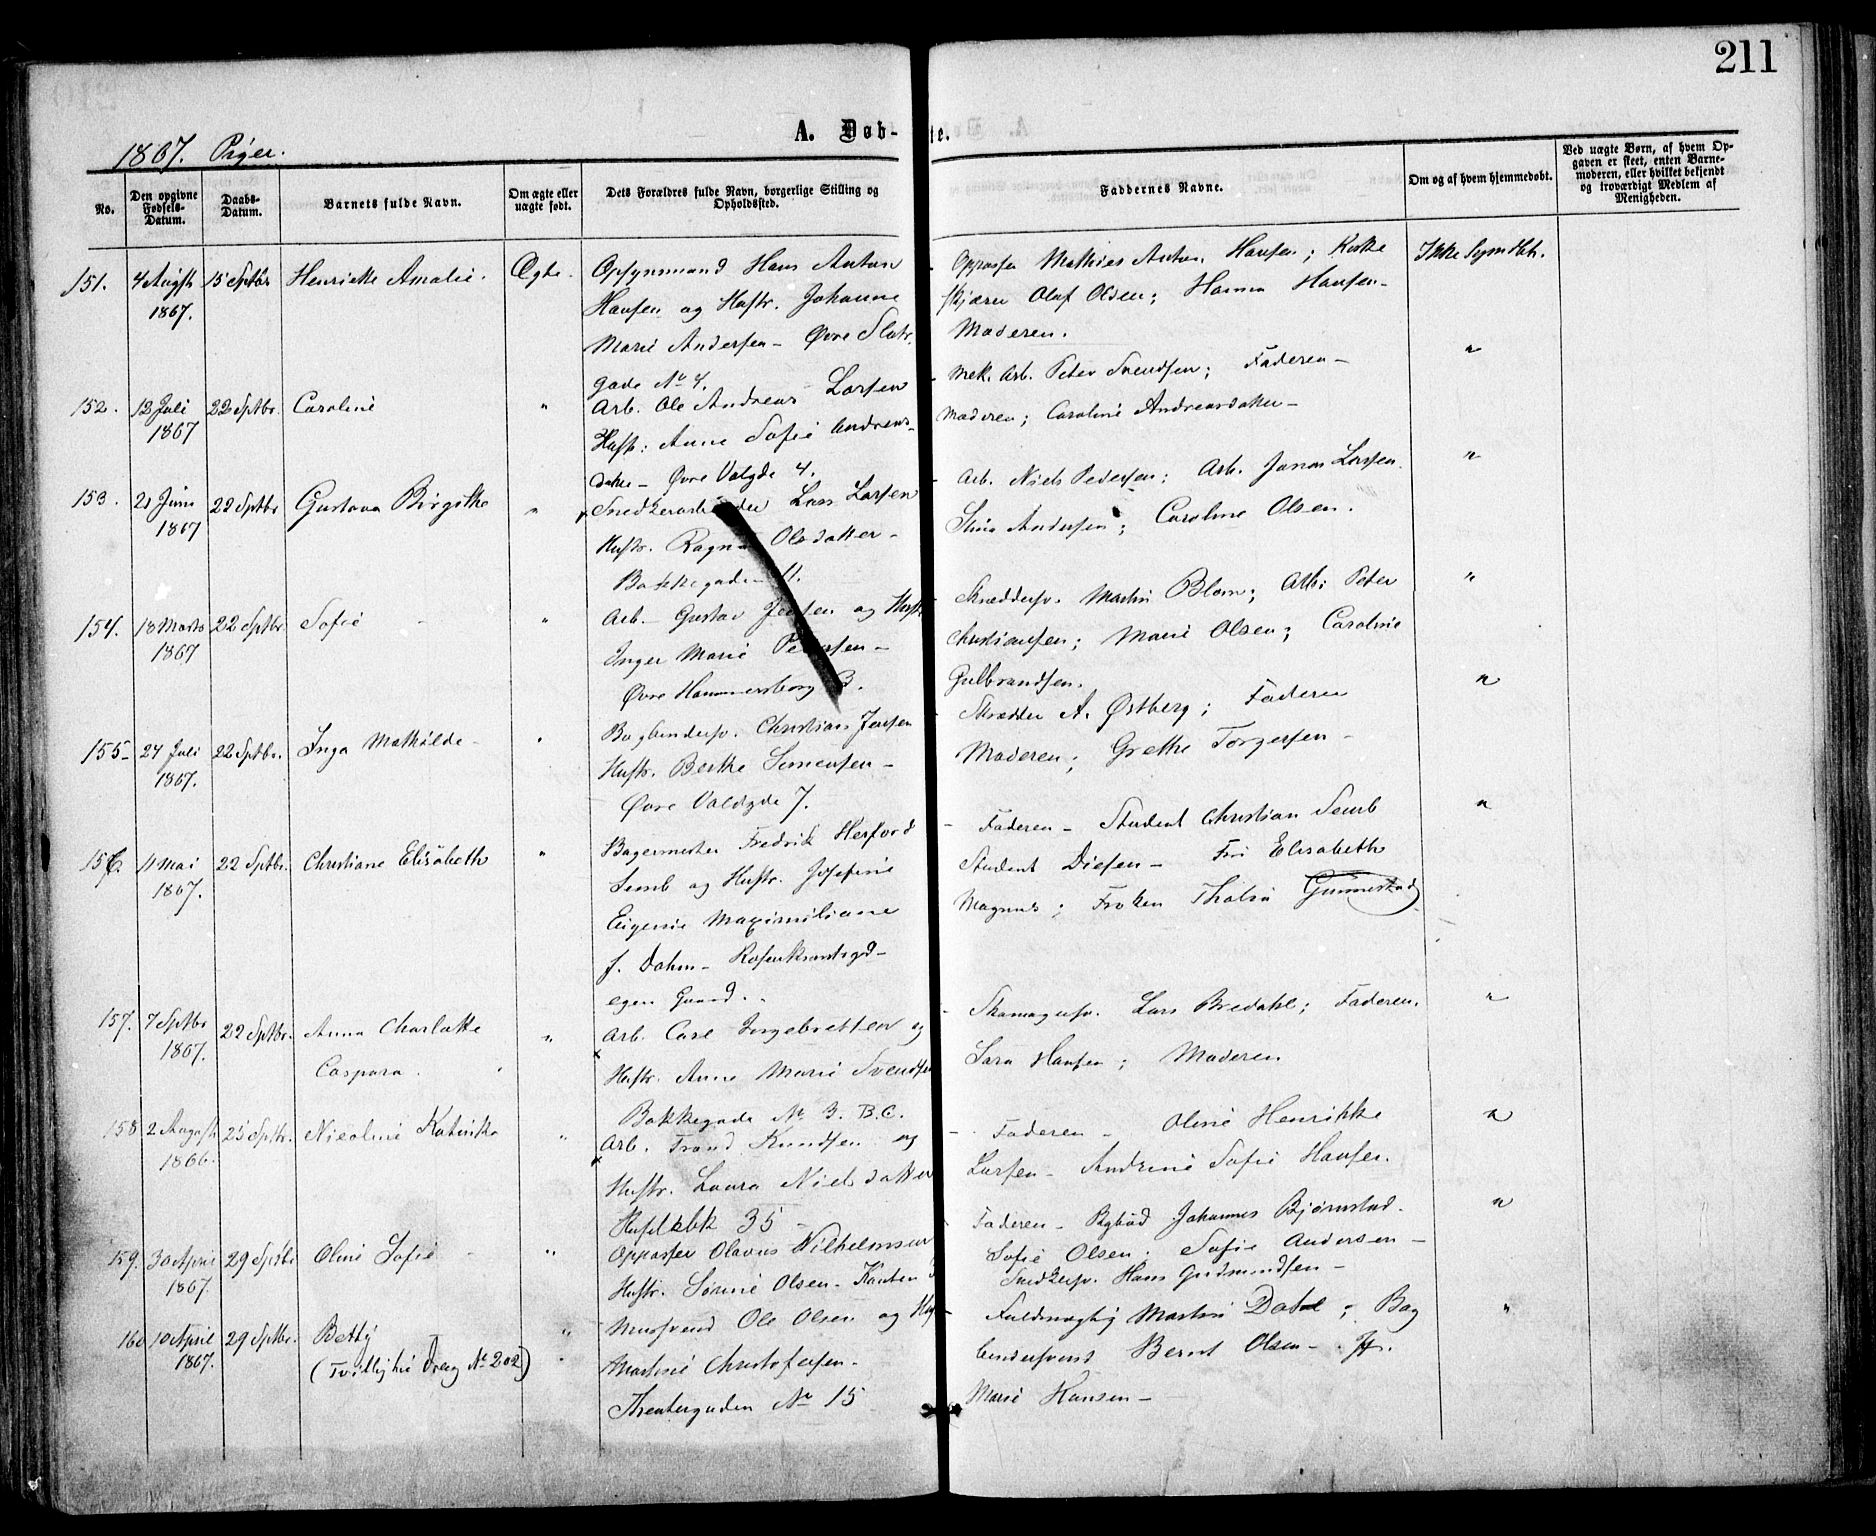 211
A. Døb-
te.
1867. Piger.
No.
Den opgivne Fødsels-Datum.
Daabs-Datum.
Barnets fulde Navn.
Om ægte eller uægte født.
Dets Forældres fulde Navn, borgerlige Stilling og Opholdssted.
Faddernes Navne.
Om og af hvem hjemmedøbt.
Ved uægte Børn, af hvem Opgaven er skeet, enten Barnemoderen, eller hvilket bekjendt og troværdigt Medlem af Menigheden.
151. 4 August 1867. 15 Septbr Henrikke Amalie. Ægte.
Opsynsmand Hans Anton
Hansen og Hustr. Johanne
Marie Andersen - Øvre Slots
gade No 4.
Oppasser Mathias Anton Hansen;
skjærer Olaf Olsen; Hanna Hansen-
Moderen.
Ikke
152. 12 Juli 1867 22 Septbr. Caroline "
Arb. Ole Andreas Larsen
Hustr: Anne Sofie Andreas-
datter - Øvre Volgde 4.
Mek. Arb. Peter Svendsen; Faderen -
Moderen; Caroline Andreasdatter -
"
153. 21 Juni 1867 22 Septbr Gustava Birgitte "
Snedkerarbeider Lars Larsen
Hustr. Ragna Olsdatter -
Bakkegaden 11.
Arb. Niels Pedersen; Arb. Jonas Larsen
Stina Andersen; Caroline Olsen.
"
154. 18 Marts 1867 22 Septbr. Sofie "
Arb. Gustav Jensen og Hustr
Inger Marie Pedersen -
Øvre Hammersborg
Skræddersv. Martin Blom; Arb: Peter
Christiansen; Marie Olsen; Caroline
Gulbrandsen.
"
155 - 27 Juli 1867. 22 Septbr. Inga Mathilde - "
Bogbindersv. Christian Jensen
Hustr. Berthe Simensen -
Øvre Voldgde 7.
Skrædder A. Østberg; Faderen
Moderen; Grethe Torgersen -
"
156. 11 Mai 1867. 22 Septbr. Christiane Elisabeth "
Bagermester Fredrik Herford
Semb og Hustr. Josefine
Eugenie Maximiliane
f. Dahm - Rosenkrantsgd -
egen Gaard.
Faderen - Student Christian Semb
Student Diesen - Fru Elisabeth
Magnus; Frøken Gunnerstad
"
157. 7 Septbr 1867. 22 Septbr. Anna Charlotte
Caspara. "
Arb. Carl Ingebretsen og
Hustr. Anne Marie Svendsen
Bakkegade No 3. B.C.
Skomagersv. Lars Bredahl; Faderen.
Sara Hansen; Moderen
"
158 2 August 1866. 25 Septbr. Nicoline Katinka "
Arb. Trond Knudsen og
Hustr. Laura Nielsdatter
35 -
Faderen - Oline Henrikke
Larsen - Andrine Sofie Hansen.
"
159. 30 April 1867. 29 Septbr Oline Sofie - "
Oppasser Olavus Wilhelmsen
Hustr. Sørine Olsen -
Faderen - Bybud Johannes Bjørnstad.
Sofie Olsen; Sofie Andersen -
Snedkersv. Hans Gudmundsen -
"
160 10 April 1867. 29 Septbr. Betty
(Tvilling til Dreng No 202) "
Mursvend Ole Olsen og
Martine Christofersen -
Theatergaden No 15
Fuldmægtig Martin Dahl; Bog
bindersvend Bernt Olsen -
Marie Hansen -
"